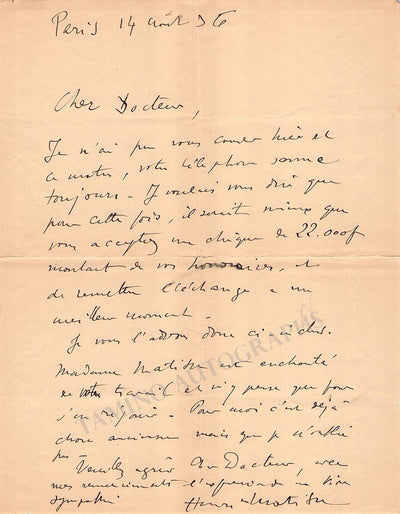 Paris 14 août 36
Cher Docteur,
Je n'ai pu vous hier et
ce matin, votre téléphone sonne
toujours - Je voulais vous dire que
pour cette fois, il serait mieux que
vous acceptiez un chèque de 22.000f
montant de vos honoraires, et
de remettre l'échange a un
meilleur moment -
Je vous l'adresse donc ci inclus.
Madame Matisse est enchantée
de votre travail et n'y pense que pour
s'en réjouir - Pour moi c'est déjà
chose ancienne mais que je n'oublie
pas - Veuillez agréer Cher Docteur, avec
mes remerciements l'expression de ma
sympathie Henri Matisse
TAMINO AUTOGRAPHS